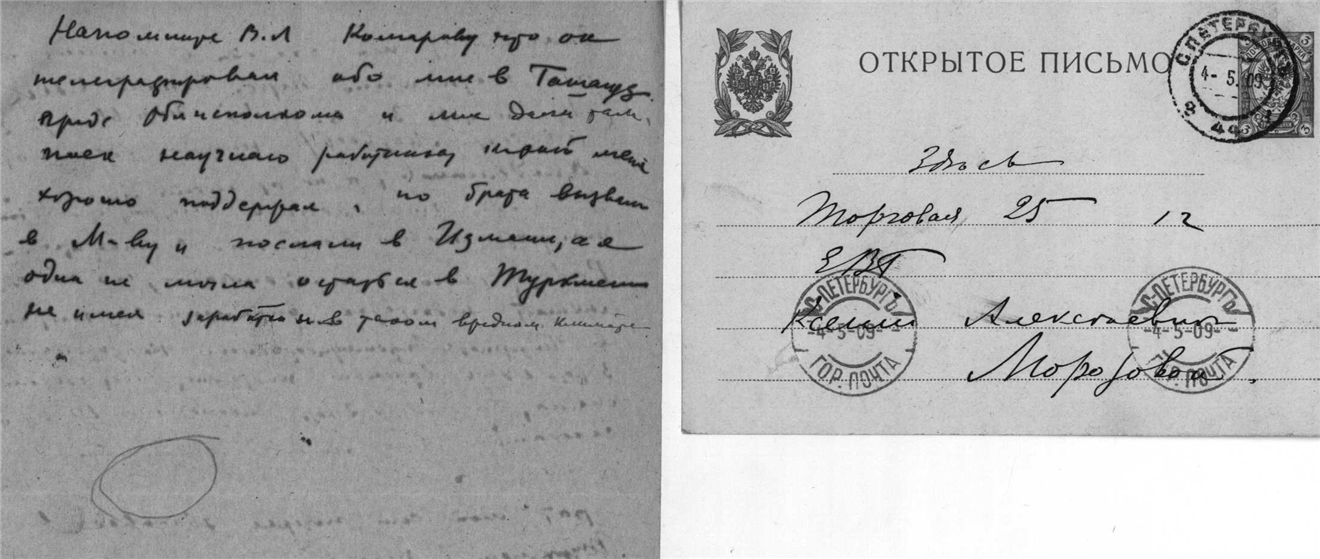 Напомните В.Л Комарову что он
телеграфировал обо мне в Ташауз
пред Облисполкома и мне дали там
паек научного работника, который меня
хорошо поддержал, но брата вызвали
в М-ву и послали в Измаил, а я
одна не могла остаться в Туркмении
не имея заработков в таком вредном климате
ОТКРЫТОЕ ПИСЬМО
С.ПЕТЕРБУРГЪ
4-5.09
Здѣсь
Торговая 25 12
ЕВБ
Ксении Алексѣевнѣ
Морозовой.
С-ПЕТЕРБУРГЪ
-4-5-09-
ГОР. ПОЧТА
С-ПЕТЕРБУРГЪ
-4-5-09-
ГОР. ПОЧТА